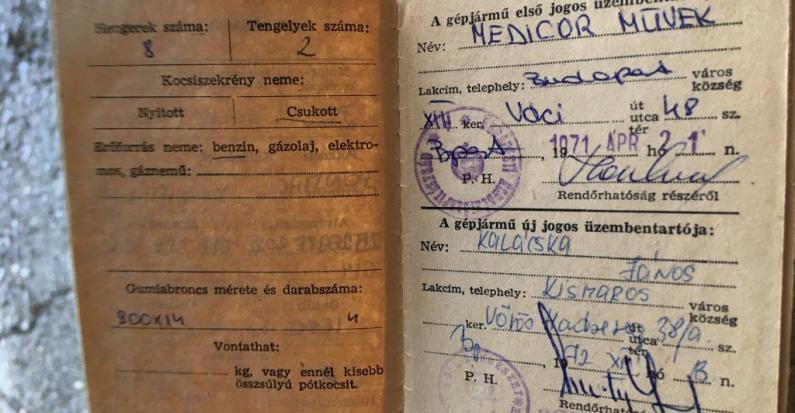 Hengerek száma: Tengelyek száma:
8 2
Kocsiszekrény neme:
Nyitott Csukott
Erőforrás neme: benzin, gázolaj, elektro-
mos, gáznemű:
Gumiabroncs mérete és darabszáma:
800X14 4
Vontathat:
kg, vagy ennél kisebb
összsúlyú pótkocsit.
A gépjármű első jogos üzembentartója:
Név: MEDICOR MŰVEK
Lakcím, telephely: Budapest város
község
XIII ker. Váci út
utca 48 sz.
tér
Bpest, 1971 ÁPR hó 21 n.
P. H.
Rendőrhatóság részéről
A gépjármű új jogos üzembentartója:
Név: KALÁCSKA
JÁNOS
Lakcím, telephely: KISMAROS
város
község
ker. Vörös út
utca 38/a sz.
tér
Bp 1972 XII hó n.
P. H.
Rendőrhatóság